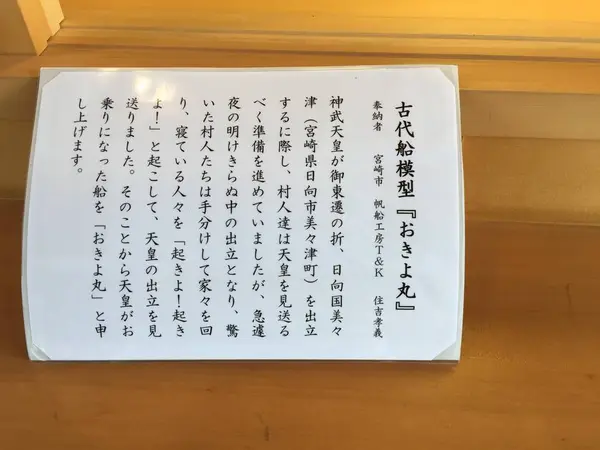 古代船模型『おきよ丸』
奉納者　宮崎市　帆船工房T&K　住吉孝義
神武天皇が御東遷の折、日向国美々
津（宮崎県日向市美々津町）を出立
するに際し、村人達は天皇を見送る
べく準備を進めていましたが、急遽
夜の明けきらぬ中の出立となり、驚
いた村人たちは手分けして家々を回
り、寝ている人々を「起きよ！起き
よ！」と起こして、天皇の出立を見
送りました。そのことから天皇がお
乗りになった船を「おきよ丸」と申
し上げます。